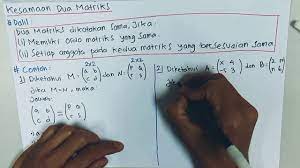 Kesamaan Dua Matriks
* Dalil
Dua Matriks dikatakan sama, Jika:
(i) Memiliki ordo matriks yang sama.
(ii) Setiap anggota pada kedua matriks yang bersesuaian sama.
* Contoh:
2x2 2x2
1) Diketahui M = (a b) dan N = (p q)
(c d) (r s)
Jika M = N, maka
Jawab:
(a b) = (p q)
(c d) (r s)
2) Diketahui A = (x 4) dan B = (2 m)
3) (n 6)